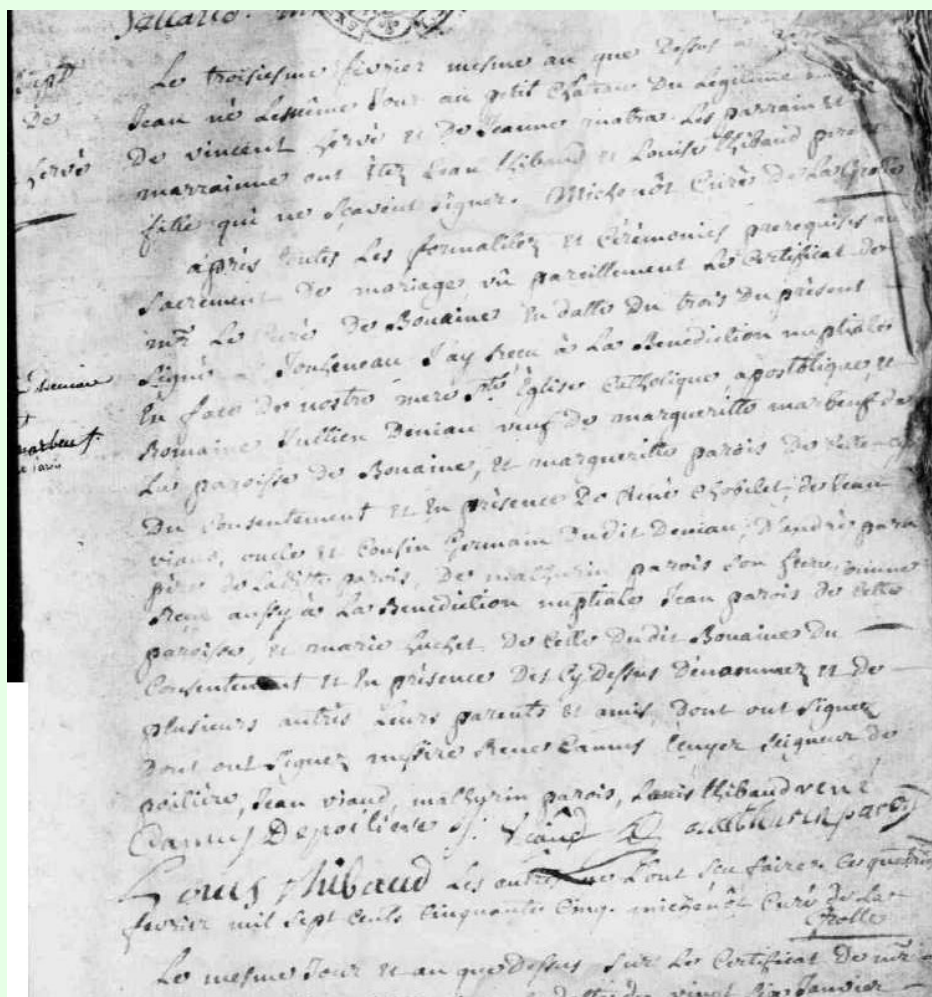 Le troisiesme février mesme an que Dessus a
Jean né Lemême Jour au petit Chateau Du Légitime
De vincent hervé et De Jeanne matra. Les parrain et
hervé
marrainne ont étez Jean thibaud et Louise thibaud
fille qui ne sçavent signer. Michenôt Curé De La Grolle
après toutes Les formalitez et Cérémonies prerequises au
Sacrement De mariage, vû pareillement Le Certificat de
mr. Le Curé De Bouaine En datte Du trois Du présent
Signé J'ay reçu à La Benediction nuptiale
En face De nostre mere Ste. Église Catholique, apostolique, et
Romaine Jullien Deniau veuf de margueritte marbeuf de
marbeuf.
La paroisse de Bouaine, et margueritte parois De
Du Consentement et En présence De Chobelet, de Jean
viaud, oncle et Cousin Germain Dudit Deniau, D'andré
père de Laditte parois, De mathurin parois Son frere, comme
Reçu aussy à La Benediction nuptiale Jean parois de Cette
paroisse, et marie huchet De Celle Dudit Bouaine Du
Consentement et En présence Des Cy Dessus Dénommez et de
plusieurs autres Leurs parents et amis, Dont ont Signez
Dont ont Signez messire Rene Camus Ecuyer Seigneur de
poiliere, Jean viaud, mathurin parois, Louis thibaud
Camus Depoiliere J. Viaud mathurin parois
Louis thibaud Les autres ne L'ont sçu faire. Ce
fevrier mil Sept Cents Cinquante Cinq. michenôt Curé de La
Grolle
Le mesme Jour et an que Dessus Sur Le Certificat De mr.
vingt Six Janvier